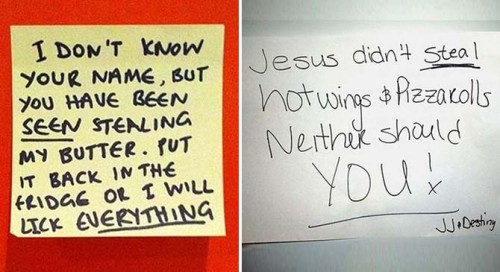 I DON'T KNOW
YOUR NAME, BUT
YOU HAVE BEEN
SEEN STEALING
MY BUTTER. PUT
IT BACK IN THE
FRIDGE OR I WILL
LICK EVERYTHING
Jesus didn't steal
hotwings & Pizzarolls
Neither should
YOU!
JJ & Destiny